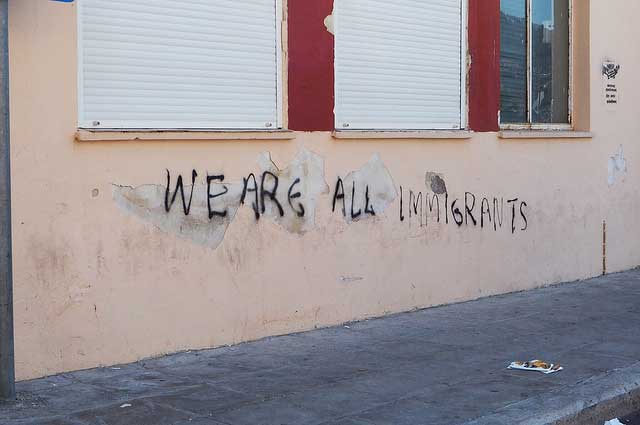 WE ARE ALL IMMIGRANTS